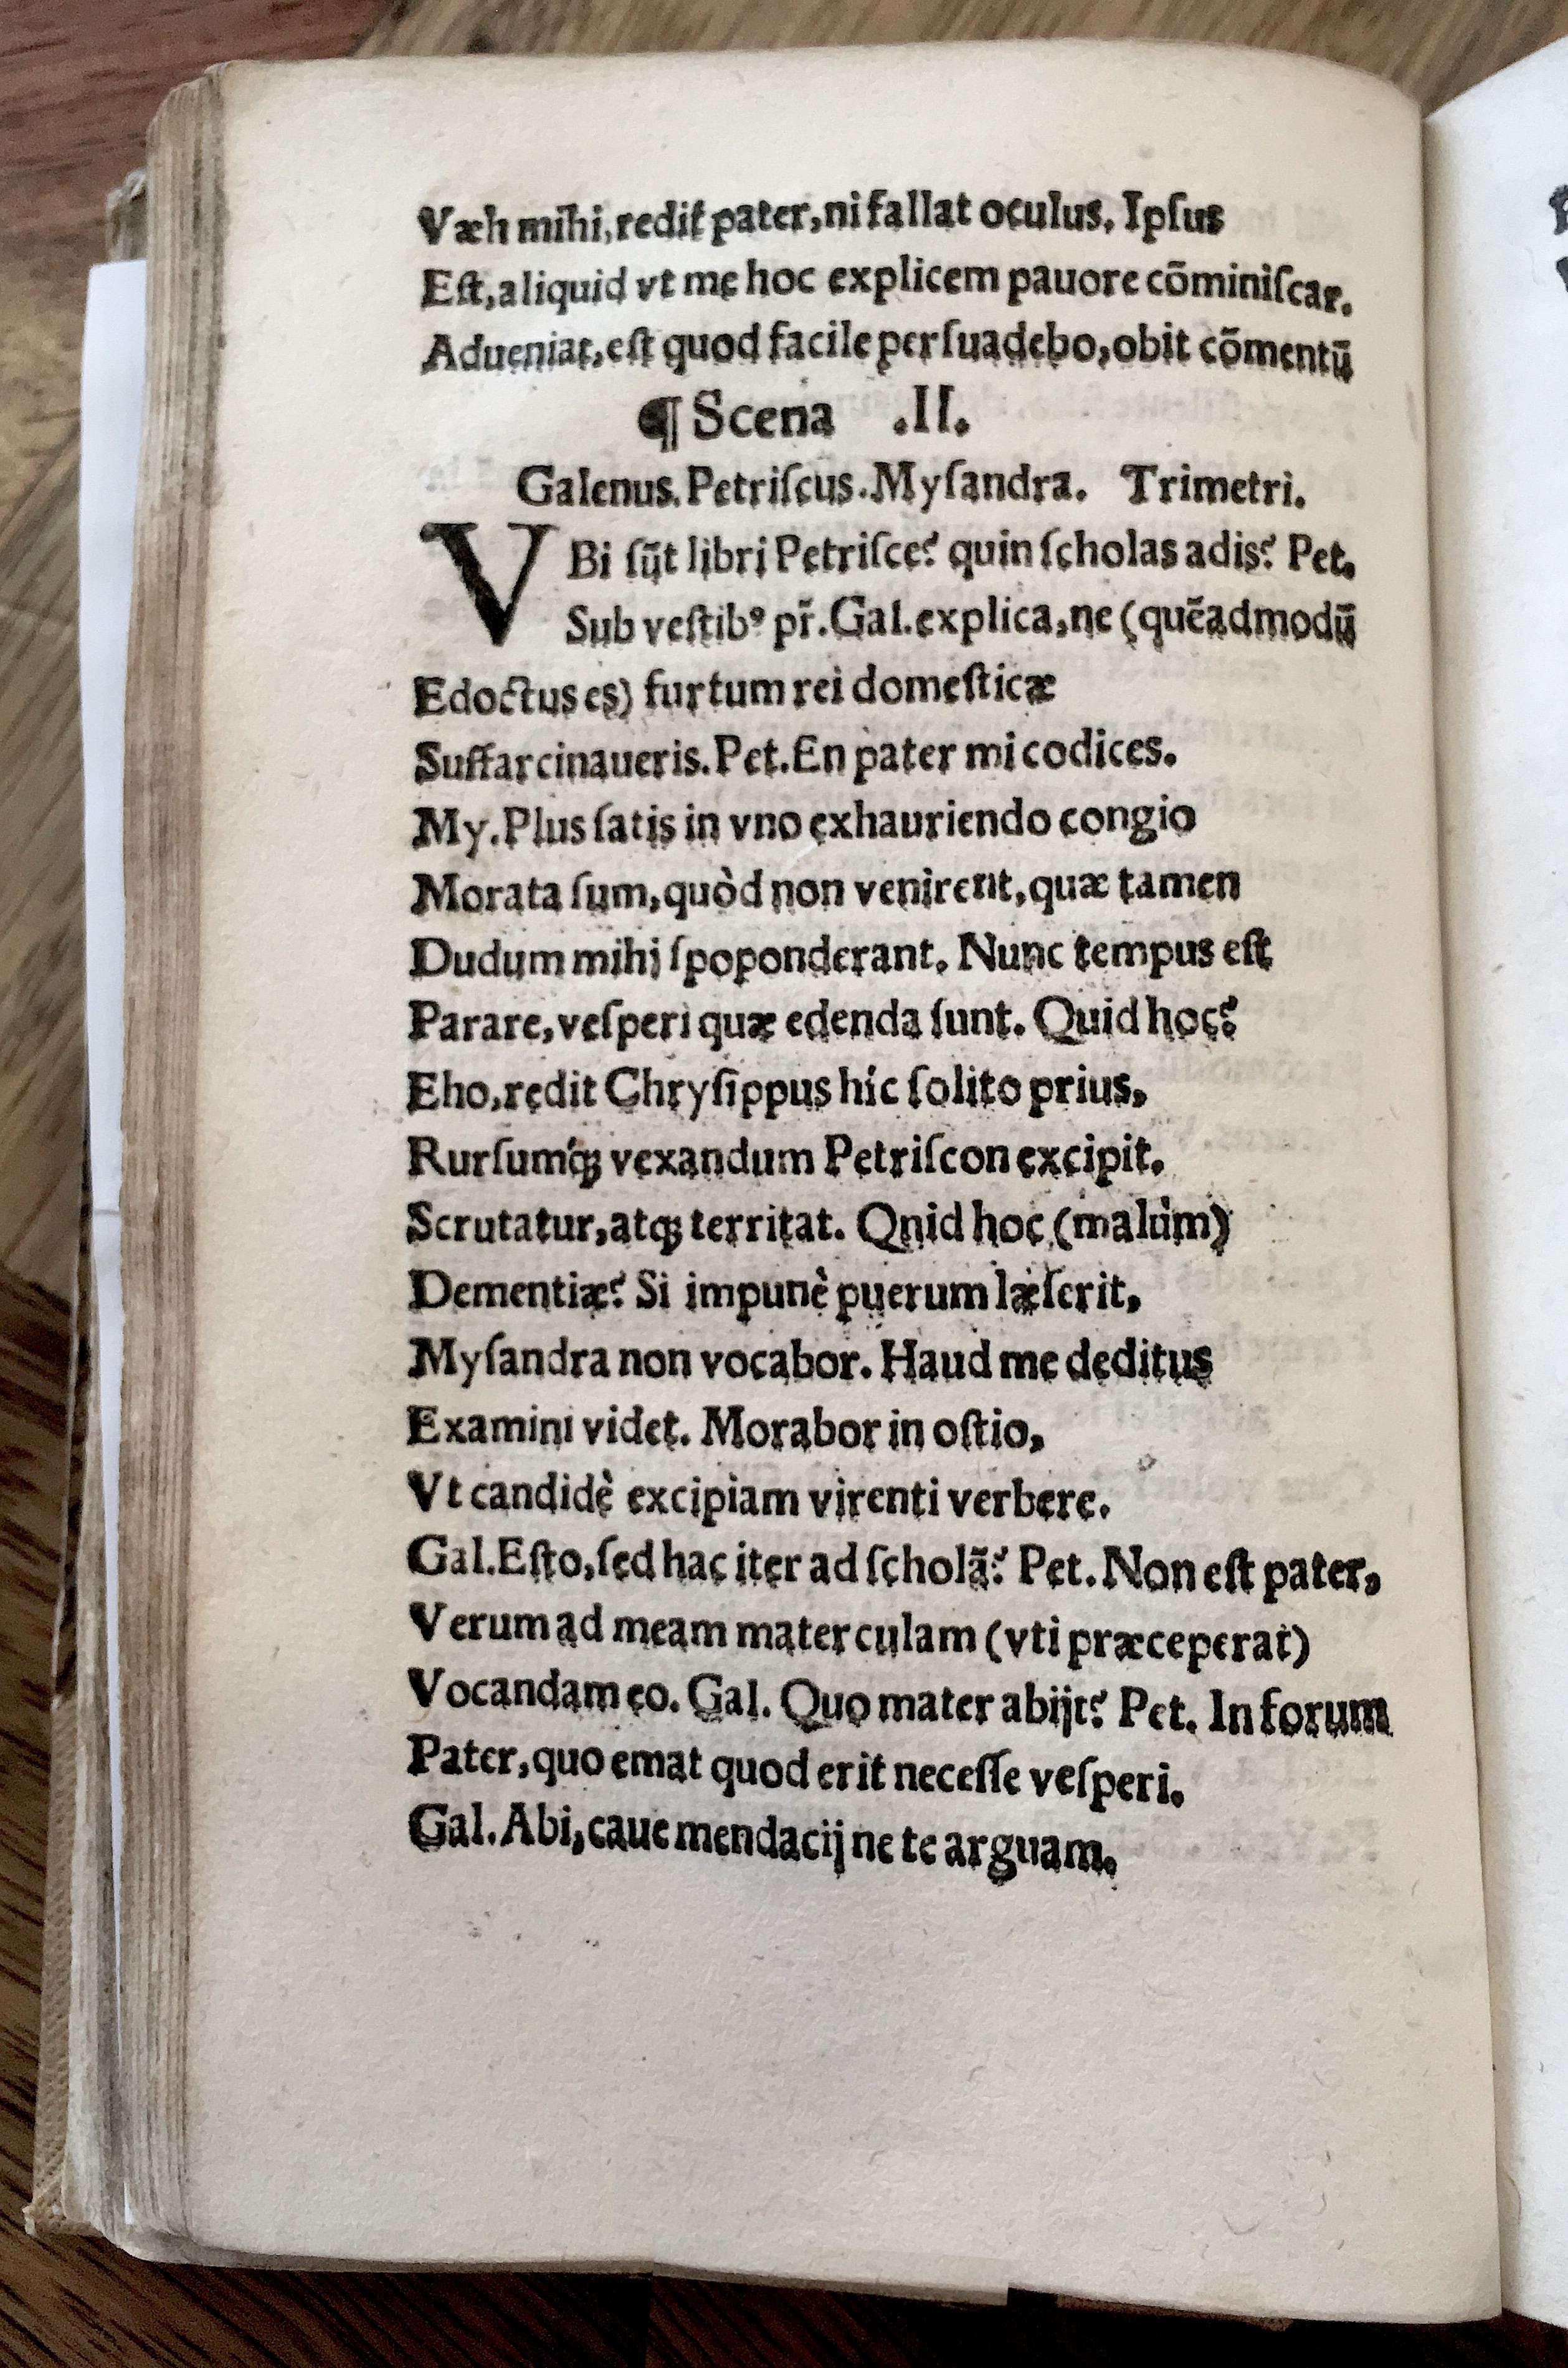 Væh mihi,redit pater,ni fallat oculus. Ipſus
Eſt,aliquid vt me hoc explicem pauore cõminiſcar.
Adueniat,eſt quod facile perſuadebo,obit cõmentũ
¶ Scena .II.
Galenus.Petriſcus.Myſandra. Trimetri.
VBi ſũt libri Petriſce? quin ſcholas adis? Pet.
Sub veſtibꝰ pr̃.Gal.explica,ne (quẽadmodũ
Edoctus es) furtum rei domeſticæ
Suffarcinaueris.Pet.En pater mi codices.
My.Plus ſatis in vno exhauriendo congio
Morata ſum,quòd non venirent,quæ tamen
Dudum mihi ſpoponderant. Nunc tempus eſt
Parare,veſperi quæ edenda ſunt. Quid hoc?
Eho,redit Chryſippus híc ſolito prius,
Rurſumq́ꝫ vexandum Petriſcon excipit.
Scrutatur,atqꝫ territat. Qnid hoc (malùm)
Dementiæ? Si impunè puerum læſerit,
Myſandra non vocabor. Haud me deditus
Examini videt. Morabor in oſtio,
Vt candidè excipiam virenti verbere.
Gal.Eſto,ſed hac iter ad ſcholã? Pet.Non eſt pater,
Verum ad meam materculam (vti præceperat)
Vocandam eo. Gal. Quo mater abijt? Pet. In forum
Pater,quo emat quod erit neceſſe veſperi.
Gal.Abi,caue mendacij ne te arguam.